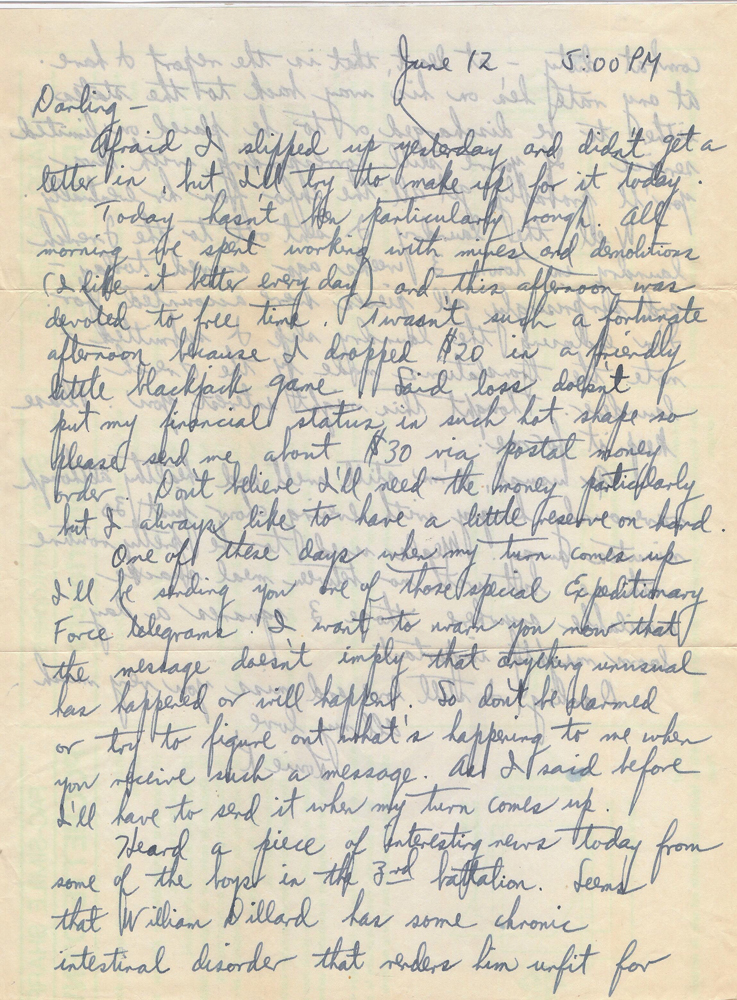 June 12 5:00 PM
Darling –
Afraid I slipped up yesterday and didn't get a
letter in, but I'll try to make up for it today.
Today hasn't been particularly rough. All
morning we spent working with mines and demolitions
(I like it better every day) and this afternoon was
devoted to free time. Twasn't such a fortunate
afternoon because I dropped $20 in a friendly
little blackjack game. Said loss doesn't
put my financial status in such hot shape so
please send me about $30 via postal money
order. Don't believe I'll need the money particularly
but I always like to have a little reserve on hand.
One of these days when my turn comes up
I'll be sending you one of those special Expeditionary
Force telegrams. I want to warn you now that
the message doesn't imply that anything unusual
has happened or will happen. So don't be alarmed
or try to figure out what's happening to me when
you receive such a message. As I said before
I'll have to send it when my turn comes up.
Heard a piece of interesting news today from
some of the boys in the 3rd battalion. Seems
that William Dillard has some chronic
intestinal disorder that renders him unfit for